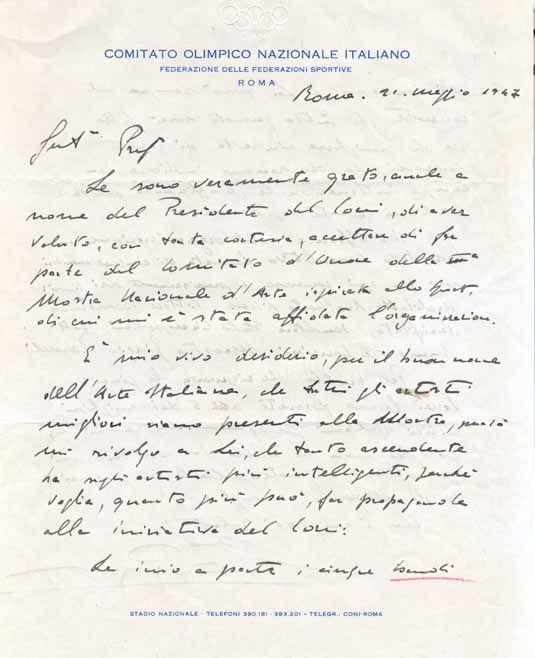 COMITATO OLIMPICO NAZIONALE ITALIANO
FEDERAZIONE DELLE FEDERAZIONI SPORTIVE
ROMA
Roma. 21. Maggio 1947
Le sono veramente grato, anche a
nome del Presidente del Coni, di aver
voluto, con tanta cortesia, accettare di far
parte del Comitato d'Onore della IIIa
Mostra Nazionale d'Arte ispirata allo Sport,
di cui mi è stata affidata l'organizzazione.
È mio vivo desiderio, per il buon nome
dell'Arte Italiana, che tutti gli artisti
migliori siano presenti alla Mostra, perciò
mi rivolgo a Lei, che tanto ascendente
ha sugli artisti più intelligenti, perché
voglia, quanto più può, far propaganda
alla iniziativa del Coni.
Le invio a parte i cinque bandi
STADIO NAZIONALE - TELEFONI 390.181 - 393.201 - TELEGR.: CONI-ROMA